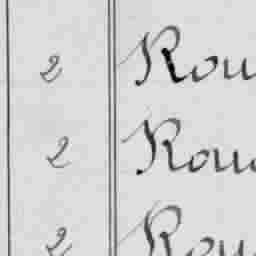 2 Rou
2 Rou
2 Rou